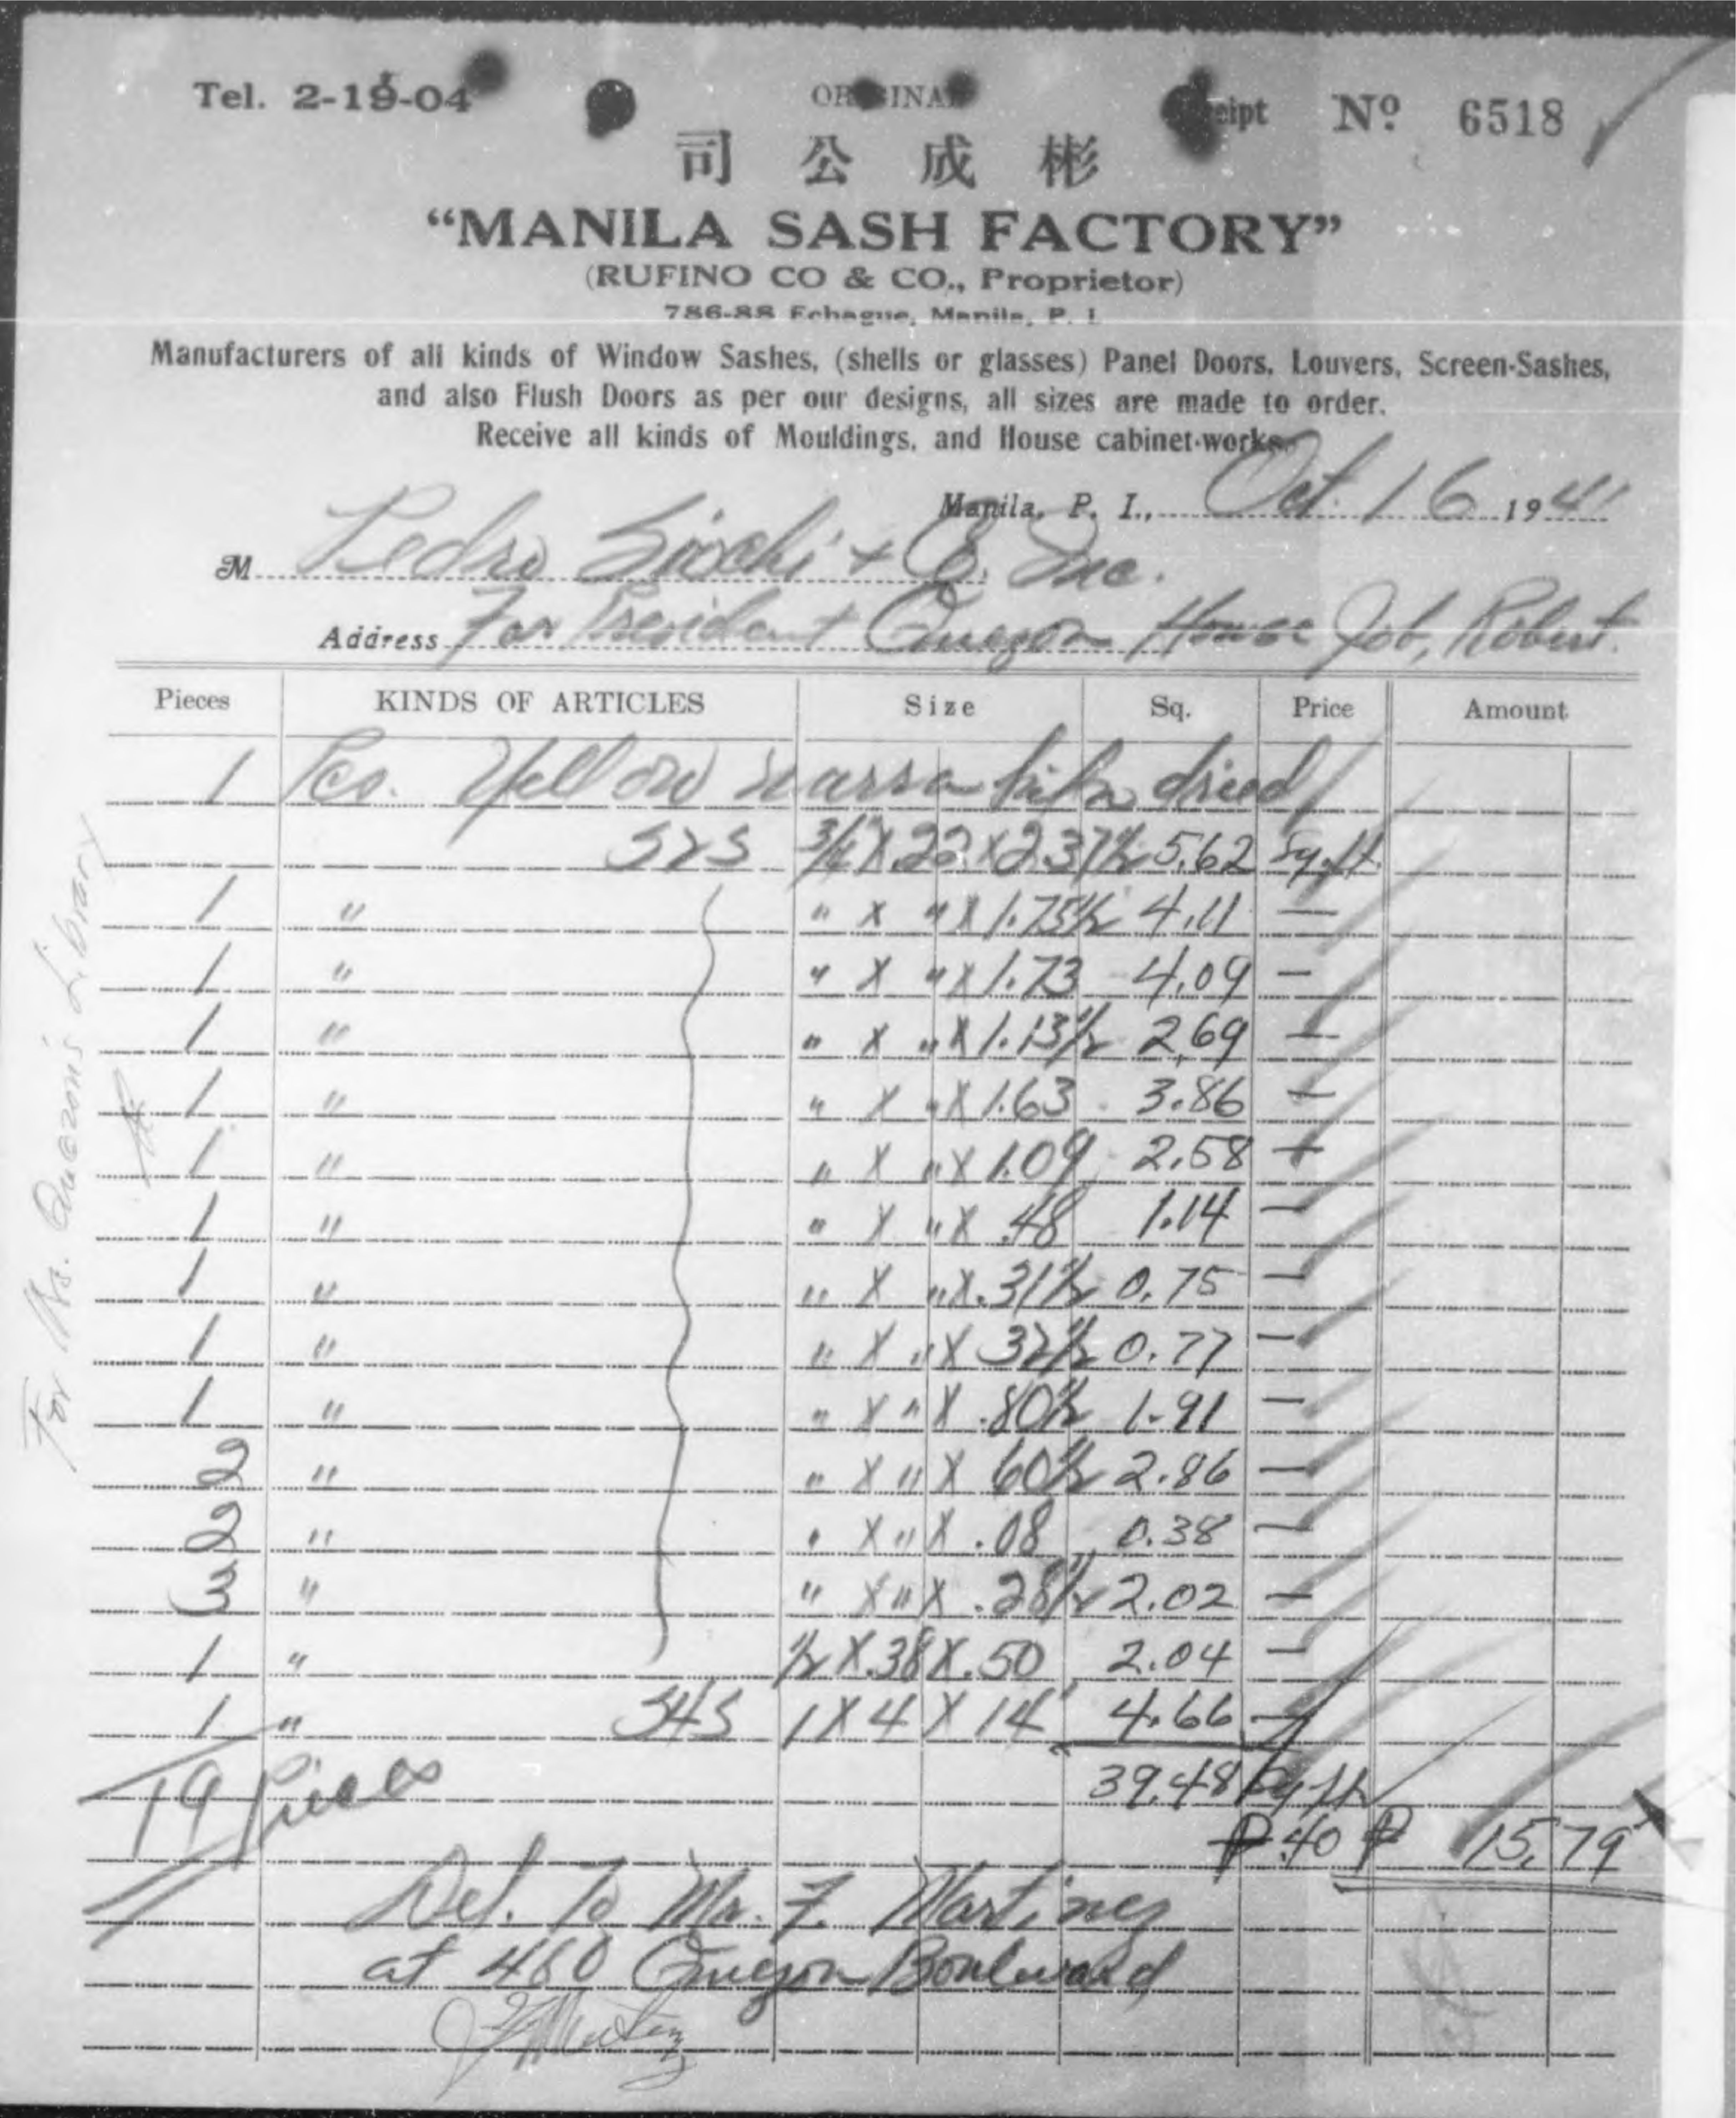 Tel. 2-19-04 ORIGINAL Receipt Nº 6518
司 公 成 彬
“MANILA SASH FACTORY”
(RUFINO CO & CO., Proprietor)
786-88 Echague, Manila, P. I.
Manufacturers of all kinds of Window Sashes, (shells or glasses) Panel Doors, Louvers, Screen-Sashes,
and also Flush Doors as per our designs, all sizes are made to order.
Receive all kinds of Mouldings, and House cabinet-works.
Manila, P. I., Oct. 16 1941
M Pedro Siochi + Co. Inc.
Address For President Quezon House Job, Robert.
Pieces KINDS OF ARTICLES Size Sq. Price Amount
1 Pcs. Yellow narra kiln dried
S2S 3/4 X .22 X 2.37 1/2 5.62 Sq. ft.
1 " " X " X 1.75 1/2 4.11 —
1 " " X " X 1.73 4.09 —
1 " " X " X 1.13 1/2 2.69 —
1 " " X " X 1.63 3.86 —
1 " " X " X 1.09 2.58 —
1 " " X " X .48 1.14 —
1 " " X " X .31 1/2 0.75 —
1 " " X " X 32 1/2 0.77 —
1 " " X " X .80 1/2 1.91 —
2 " " X " X 60 1/2 2.86 —
2 " " X " X .08 0.38 —
3 " " X " X .28 1/2 2.02 —
1 " 1/2 X .38 X .50 2.04 —
1 " S4S 1 X 4 X 14' 4.66 —
39.48 Sq ft
19 Pieces
₱ .40 ₱ 15.79
Del. To Mr. F. Martinez
at 460 Quezon Boulevard
FMartinez
For Mrs. Quezon's Library